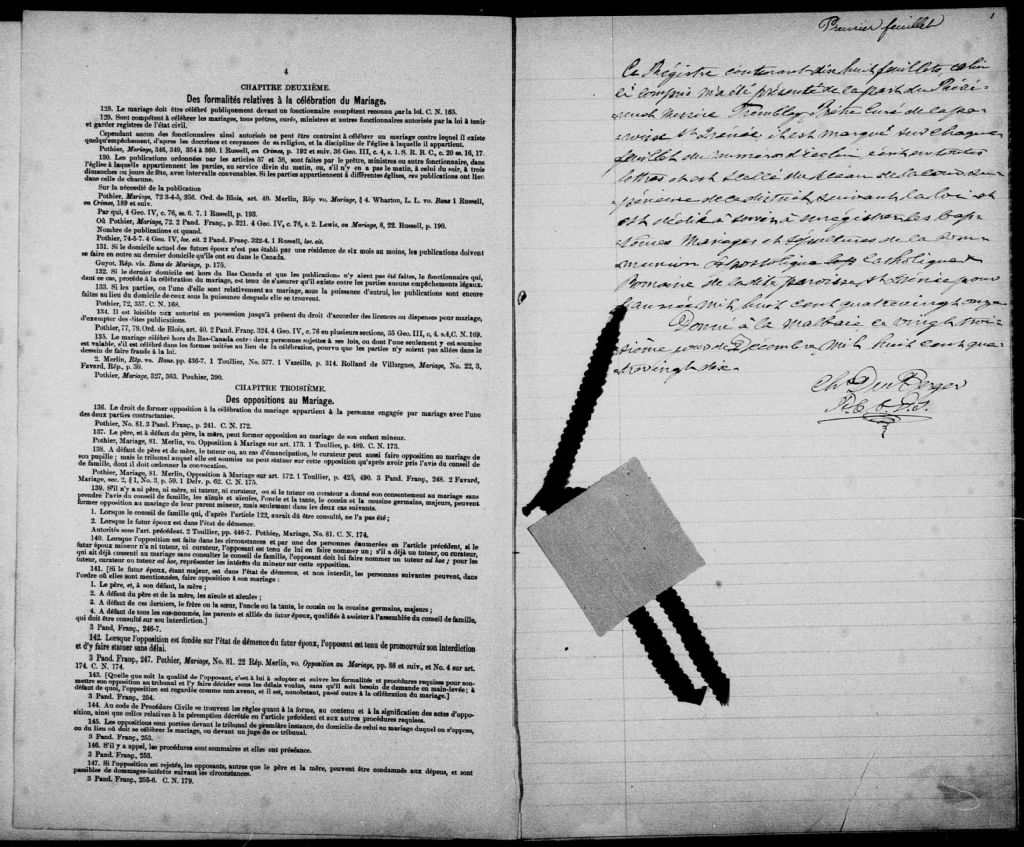 4
CHAPITRE DEUXIÈME.
Des formalités relatives à la célébration du Mariage.
128. Le mariage doit être célébré publiquement devant un fonctionnaire compétent reconnu par la loi. C. N. 165.
129. Sont compétents à célébrer les mariages, tous prêtres, curés, ministres et autres fonctionnaires autorisés par la loi à tenir
et garder registres de l'état civil.
Cependant aucun des fonctionnaires ainsi autorisés ne peut être contraint à célébrer un mariage contre lequel il existe
quelqu'empêchement, d'après les doctrines et croyances de sa religion, et la discipline de l'église à laquelle il appartient.
Pothier, Mariage, 346, 349, 354 à 360. 1 Russell, on Crimes, p. 192 et suiv. 36 Geo. III, c. 4, s. 1. S. R. B. C., c. 20 ss. 16, 17.
130. Les publications ordonnées par les articles 57 et 58, sont faites par le prêtre, ministre ou autre fonctionnaire, dans
l'église à laquelle appartiennent les parties, au service divin du matin, ou, s'il n'y en a pas le matin, à celui du soir, à trois
dimanches ou jours de fête, avec intervalle convenables. Si les parties appartiennent à différentes églises, ces publications ont lieu
dans celle de chacune.
Sur la nécessité de la publication
Pothier, Mariage, 72 3-4-5, 356. Ord. de Blois, art. 40. Merlin, Rép vo. Mariage, § 4. Wharton, L. L. vo. Bans 1 Russell,
on Crimes, 189 et suiv.
Par qui, 4 Geo. IV, c. 76, ss. 6. 7. 1 Russell, p. 193.
Où Pothier, Mariage, 72. 2 Pand. Franç., p. 321. 4 Geo. IV, c. 76, s. 2. Lewis, on Mariage, 8, 22. Russell, p. 190.
Nombre de publications et quand.
Pothier, 74-5-7. 4 Geo. IV, loc. cit. 2 Pand. Franç. 322-4. 1 Russell, loc. cit.
131. Si le domicile actuel des futurs époux n'est pas établi par une résidence de six mois au moins, les publications doivent
se faire en outre au dernier domicile qu'ils ont eu dans le Canada.
Guyot, Rép. vis. Bans de Mariage, p. 175.
132. Si le dernier domicile est hors du Bas Canada et que les publications n'y aient pas été faites, le fonctionnaire qui,
dans ce cas, procède à la célébration du mariage, est tenu de s'assurer qu'il existe entre les parties aucuns empêchements légaux.
133. Si les parties, ou l'une d'elle sont relativement au mariage, sous la puissance d'autrui, les publications sont encore
faites au lieu du domicile de ceux sous la puissance desquels elle se trouvent.
Pothier, 72, 357. C. N. 168.
134. Il est loisible aux autorités en possession jusqu'à présent du droit d'accorder des licences ou dispenses pour mariage,
d'exempter des dites publications.
Pothier, 77, 78. Ord. de Blois, art. 40. 2 Pand. Franç. 324. 4 Geo. IV, c. 76 en plusieurs sections, 35 Geo. III, c, 4. s.4,C. N. 169.
135. Le mariage célébré hors du Bas-Canada entre deux personnes sujettes à ses lois, ou dont l'une seulement y est soumise
est valable, s'il est célébré dans les formes usitées au lieu de la célébration, pourvu que les parties n'y soient pas allées dans le
dessein de faire fraude à la loi.
2. Merlin, Rép. vo. Bans. pp. 436-7. 1 Toullier, No. 577. 1 Vazeille, p. 314. Rolland de Villargues, Mariage, No. 22, 3,
Favard, Rép., p. 30.
Pothier, Mariage, 327, 363. Pouhier, 390.
CHAPITRE TROISIÈME.
Des oppositions au Mariage.
136. Le droit de former opposition à la célébration du mariage appartient à la personne engagée par mariage avec l'une
des deux parties contractantes.
Pothier, No. 81. 3 Pand. Franç., p. 241. C. N. 172.
137. Le père, et à défaut du père, la mère, peut former opposition au mariage de son enfant mineur.
Pothier, Mariage, 81. Merlin, vo. Opposition à Mariage sur art. 173. 1 Toullier, p. 489. C. N. 173.
138. A défaut de père et de mère, le tuteur ou, au cas d'émancipation, le curateur peut aussi faire opposition au mariage de
son pupille; mais le tribunal auquel elle est soumise ne peut statuer sur cette opposition qu'après avoir pris l'avis du conseil de
de famille, dont il doit ordonner la convocation.
Pothier, Mariage, 81. Merlin, Opposition à Mariage sur art. 172. 1 Toullier, p. 425, 490. 3 Pand. Franç., 248. 2 Favard,
Mariage, sec. 2, § 1, No. 3, p. 59. 1 Delv. p. 62. C. N. 175.
139. S'il n'y a ni père, ni mère, ni tuteur, ni curateur, ou si le tuteur ou curateur a donné son consentement au mariage sans
prendre l'avis du conseil de famille, les aïeuls et aïeules, l'oncle et la tante, le cousin et la cousine germains, majeurs, peuvent
former opposition au mariage de leur parent mineur, mais seulement dans les deux cas suivants.
1. Lorsque le conseil de famille qui, d'après l'article 122, aurait dû être consulté, ne l'a pas été;
2. Lorsque le futur époux est dans l'état de démence.
Autorités sous l'art. précédent. 2 Toullier, pp. 446-7. Pothier, Mariage, No. 81. C. N. 174.
140. Lorsque l'opposition est faite dans les circonstances et par une des personnes énumérées en l'article précédent, si le
futur époux mineur n'a ni tuteur, ni curateur, l'opposant est tenu de lui en faire nommer un; s'il a déjà un tuteur, ou curateur,
qui ait déjà consenti au mariage sans consulter le conseil de famille, l'opposant doit lui faire nommer un tuteur ad hoc; pour les
tuteur, curateur ou tuteur ad hoc, représenter les intérêts du mineur sur cette opposition.
141. [Si le futur époux, étant majeur, est dans l'état de démence, et non interdit, les personnes suivantes peuvent, dans
l'ordre où elles sont mentionnées, faire opposition à son mariage:
1. Le père, et, à son défaut, la mère;
2. A défaut du père et de la mère, les aïeuls et aïeules;
3. A défaut de ces derniers, le frère ou la sœur, l'oncle ou la tante, le cousin ou la cousine germains, majeurs;
4. A défaut de tous les sus-nommés, les parents et alliés du futur époux, qualifiés à assister à l'assemblée du conseil de famille,
qui doit être consulté sur son interdiction.]
3 Pand, Franç., 246-7.
142. Lorsque l'opposition est fondée sur l'état de démence du futur époux, l'opposant est tenu de promouvoir son interdiction
et d'y faire statuer sans délai.
3 Pand. Franç., 247. Pothier, Mariage, No. 81. 22 Rép. Merlin, vo. Opposition au Mariage, pp. 88 et suiv., et No. 4 sur art.
174. C. N. 174.
143. [Quelle que soit la qualité de l'opposant, c'est à lui à adopter et suivre les formalités et procédures requises pour sou-
mettre son opposition au tribunal et l'y faire décider sous les délais voulus, sans qu'il soit besoin de demande en main-levée; à
défaut de quoi, l'opposition est regardée comme non avenu, et il est, nonobstant, passé outre à la célébration du mariage.]
3 Pand. Franç., 254.
144. Au code de Procédure Civile se trouvent les règles quant à la forme, au contenu et à la signification des actes d'oppo-
sition, ainsi que celles relatives à la péremption décrétée en l'article précédent et aux autres procédures requises.
145. Les oppositions sont portées devant le tribunal de première instance, du domicile de celui au mariage duquel on s'oppose,
ou du lieu où doit se célébrer le mariage, ou devant un juge de ce tribunal.
3 Pand. Franç., 253.
146. S'il y a appel, les procédures sont sommaires et elles ont préséance.
3 Pand. Franç., 253.
147. Si l'opposition est rejetée, les opposants, autres que le père et la mère, peuvent être condamnés aux dépens, et sont
passibles de dommages-intérêts suivant les circonstances.
3 Pand. Franç., 255-6. C. N. 179.
1
Premier feuillet
Ce Régistre contenant dix huit feuillets celui
ci compris m'a été présenté de la part du Révé-
rend Messire Tremblay Prêtre Curé de la pa-
roisse St Irénée il est marqué sur chaque
feuillet du numéro d'icelui écrit en toutes
lettres et est scellé du sceau de la cour su-
périeure de ce district, suivant la loi et
est dédié à servir à enregistrer les bap-
têmes Mariages et Sépultures de la com-
munion Apostolique Catholique et
Romaine de la dite paroisse St Irénée pour
l'année mil huit cent quatrevingt onze
Donné à la Malbaie ce vingt troi-
sième jour de Décembre mil huit cent qua-
trevingt dix.
Chs Du Berger
P. C. S.